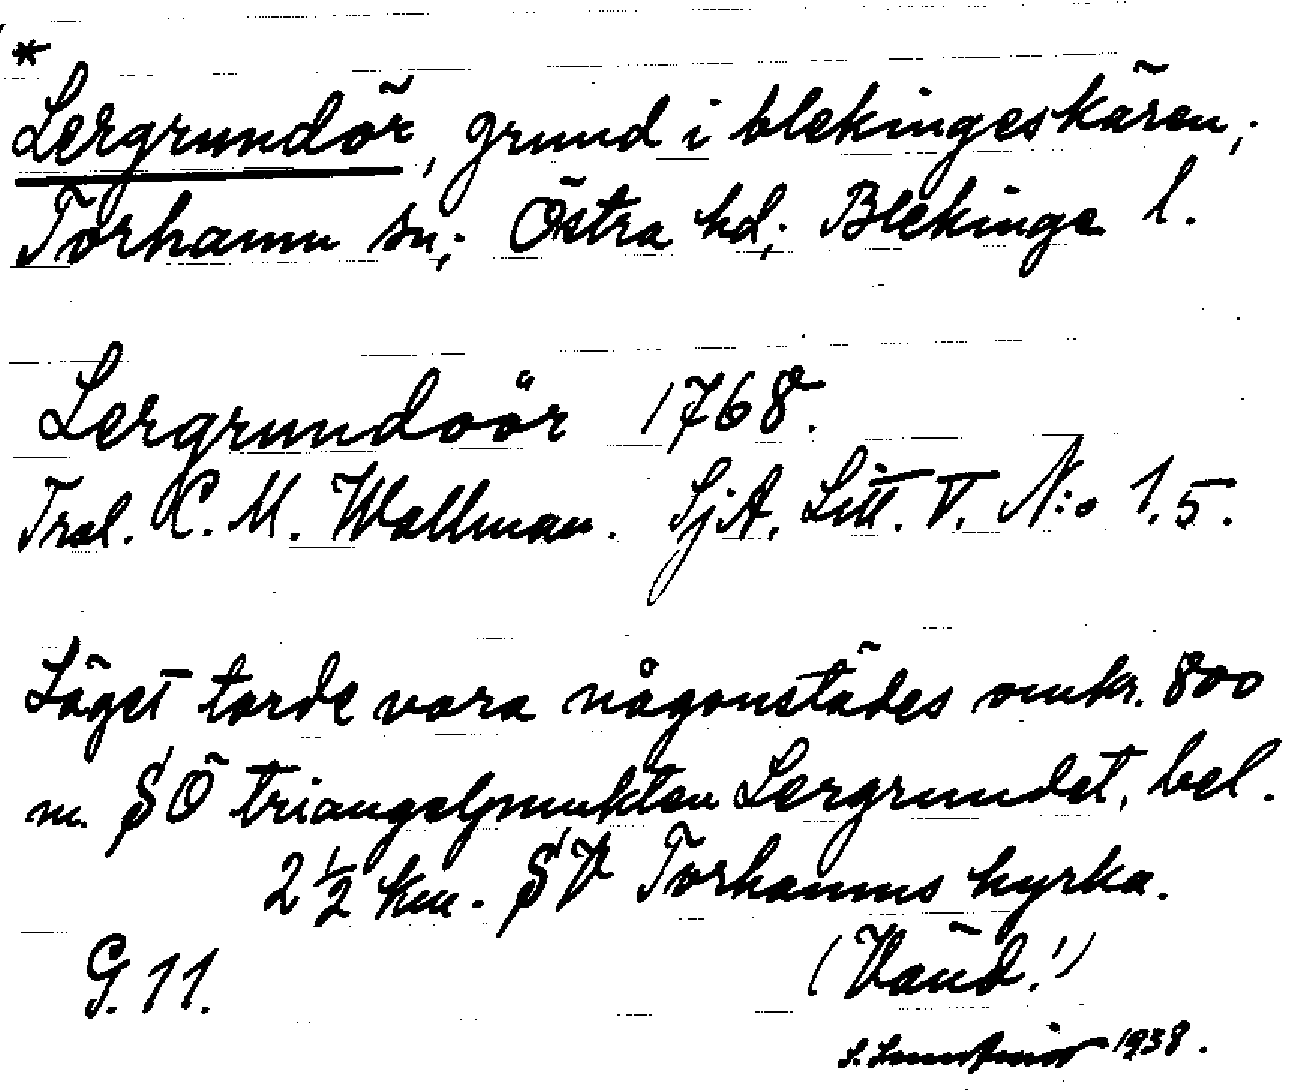 *
Lergrundör, grund i blekingeskären,;
Torhamn sn,; Östra hd,; Blekinge l.
Lergrundoör 1768.
Trol. C. M. Wallman. SjA. Litt. V. N:o 1.5.
Läget torde vara någonstädes omkr. 800
m. SÖ triangelpunkten Lergrundet, bel.
2 1/2 km. SV Torhamns kyrka.
G. 11. (Vänd!)
1938.